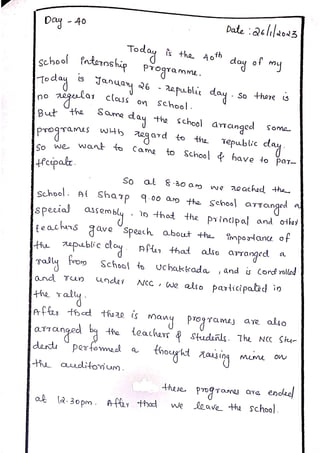 Day - 40
Date : 26/1/2023
Today is the 40th day of my
school internship programme.
Today is January 26 - republic day. So there is
no regular class on school.
But the same day the school arranged some
programes with regard to the republic day.
So we want to came to school & have to par-
ticipate.
So at 8.30 am we reached the
school. At sharp 9.00 am the school arranged a
special assembly. In that the principal and other
teachers gave speech about the importance of
the republic day. After that also arranged a
rally from school to Uchakkada, and is controlled
and run under NCC. We also participated in
the rally.
After that there is many programes are also
arranged by the teachers & students. The NCC stu-
dents performed a thought raising mime on
the auditorium.
these programes are ended
at 12.30pm. After that we leave the school.